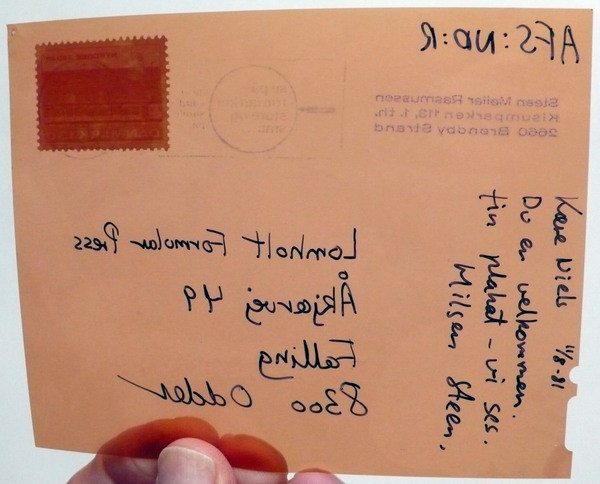 AFS:ND:R
Steen Møller Rasmussen
Kisumparken 113, 1. th.
2660 Brøndby Strand
Lomholt Formular Press
Åkjærvej 49
Falling
8300 Odder
Kære Niels 11/8-81
Du er velkommen.
fin plakat - vi ses.
Hilsen Steen.